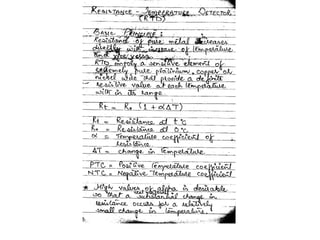 RESISTANCE TEMPERATURE DETECTOR
(RTD)
BASIC PRINCIPLE :
Resistance of pure metal increases
directly with increase of temperature
and vice versa.
RTD imploy a sensitive element of
extremely pure platinium, copper or
nickel wire that provide a definite
resistive value at each temperature
with in its range
Rt = Ro (1 + αΔT)
Rt = Resistance at t°C
Ro = Resistance at 0°C
α = Temperature coefficient of
resistance
ΔT = change in temperature
PTC = Positive Temperature coefficient
NTC = Negative Temperature coefficient
* High value of alpha is desirable
so that a substantial change in
resistance occurs for a relatively
small change in temperature.